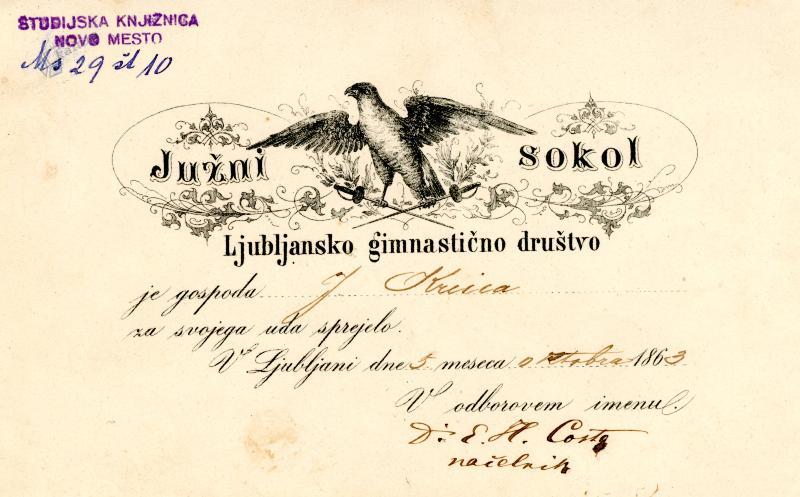 ŠTUDIJSKA KNJIŽNICA
NOVO MESTO
Ms 29 št 10
Južni sokol
Ljubljansko gimnastično društvo
je gospoda J
za svojega uda sprejelo.
V Ljubljani dne 5 meseca oktobra 1863
V odborovem imenu.
Dr. E. H. Costa
načelnik